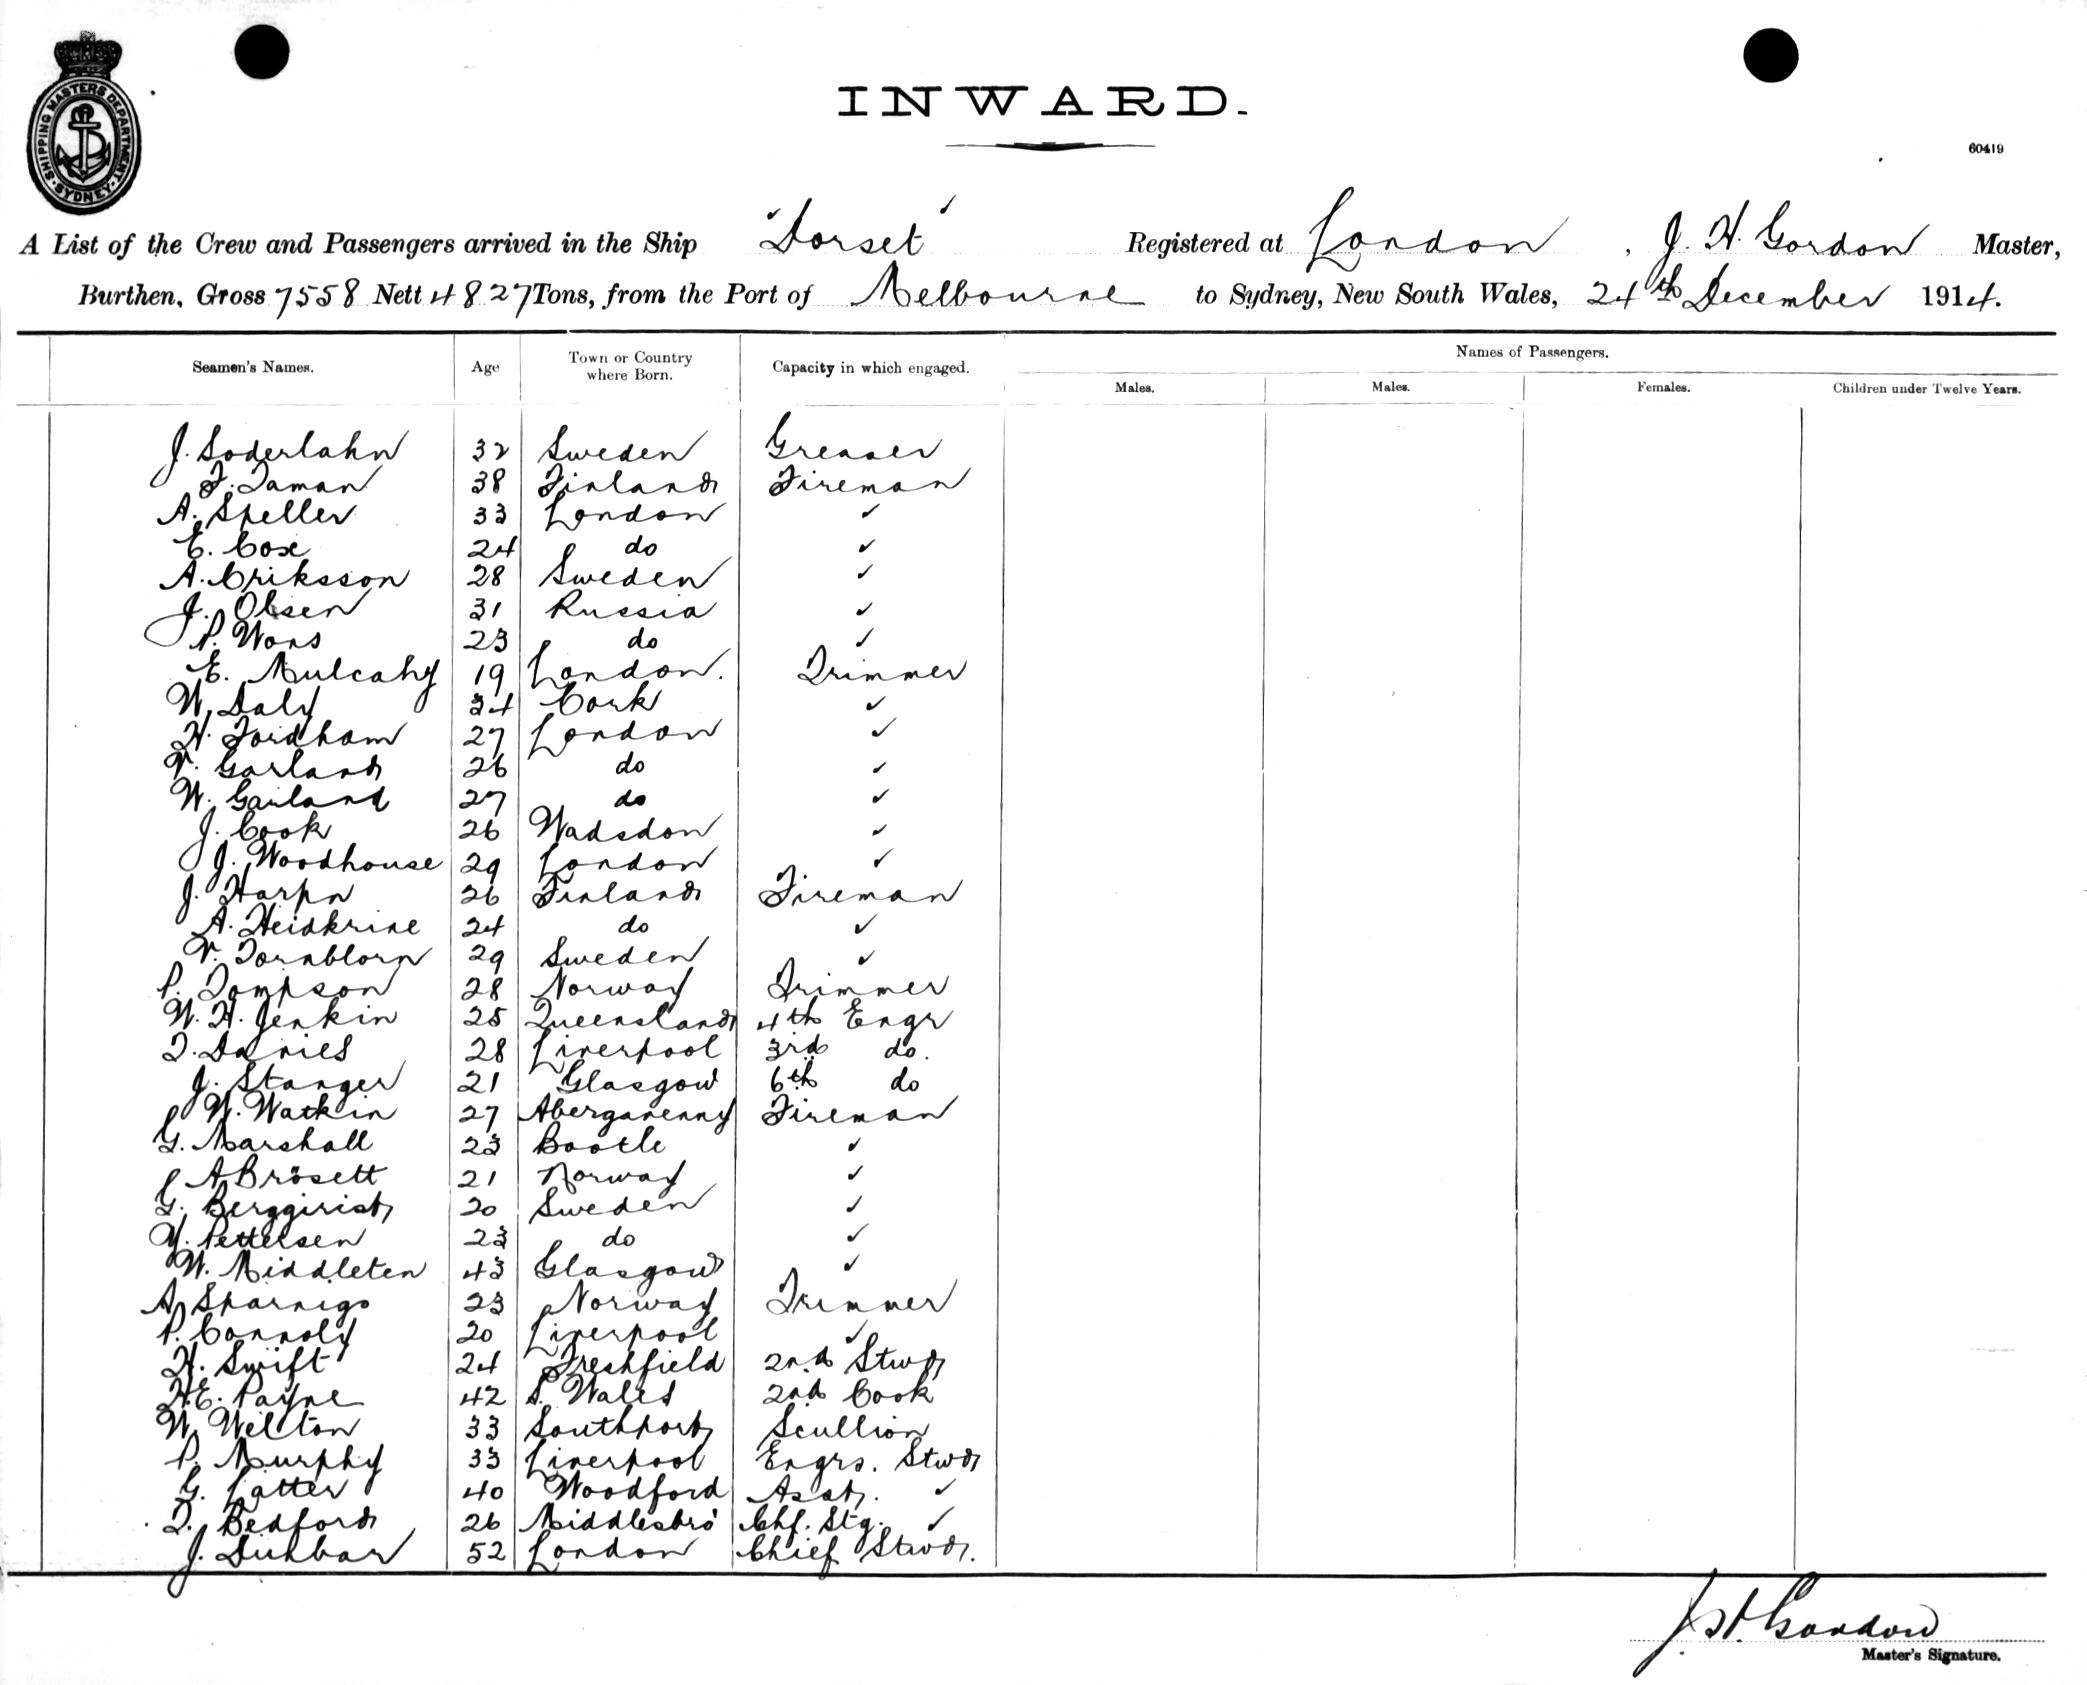 INWARD.
SHIPPING MASTERS DEPARTMENT SYDNEY
60419
A List of the Crew and Passengers arrived in the Ship "Dorset" Registered at London, J. H. Gordon Master,
Burthen, Gross 7558 Nett 4827 Tons, from the Port of Melbourne to Sydney, New South Wales, 24th December 1914.
Seamen's Names. Age Town or Country where Born. Capacity in which engaged. Names of Passengers.
Males. Males. Females. Children under Twelve Years.
J. Soderlahn 32 Sweden Greaser
F. Taman 38 Finland Fireman
A. Speller 33 London ✓
E. Cox 24 do ✓
A. Eriksson 28 Sweden ✓
J. Olsen 31 Russia ✓
P. Wons 23 do ✓
E. Mulcahy 19 London. Trimmer
W. Daly 24 Cork ✓
H. Fordham 27 London ✓
V. Garland 26 do ✓
W. Garland 27 do ✓
J. Cook 26 Wadsdon ✓
J. Woodhouse 29 London ✓
J. Harpn 26 Finland Fireman
A. Heidkrine 24 do ✓
V. Tornblorn 29 Sweden ✓
P. Tompson 28 Norway Trimmer
W. H. Jenkin 25 Queensland 4th Engr
T. Davies 28 Liverpool 3rd do.
J. Stanger 21 Glasgow 6th do
W. Watkin 27 Abergavenny Fireman
G. Marshall 23 Bootle ✓
A Brösett 21 Norway ✓
G. Berggirist 20 Sweden ✓
Y. Pettersen 23 do ✓
W. Middleten 43 Glasgow ✓
A. Sparnigo 23 Norway Trimmer
P. Connoly 20 Liverpool ✓
H. Swift 24 Freshfield 2nd Stwd
H.E. Payne 42 S. Wales 2nd Cook
W. Wilton 33 Southport Scullion
P. Murphy 33 Liverpool Engrs. Stwd
G. Latter 40 Woodford Asst. ✓
T. Bedford 26 Middlesbro' Chf. Stg. ✓
J. Dunbar 52 London Chief Stwd.
J. H. Gordon
Master's Signature.